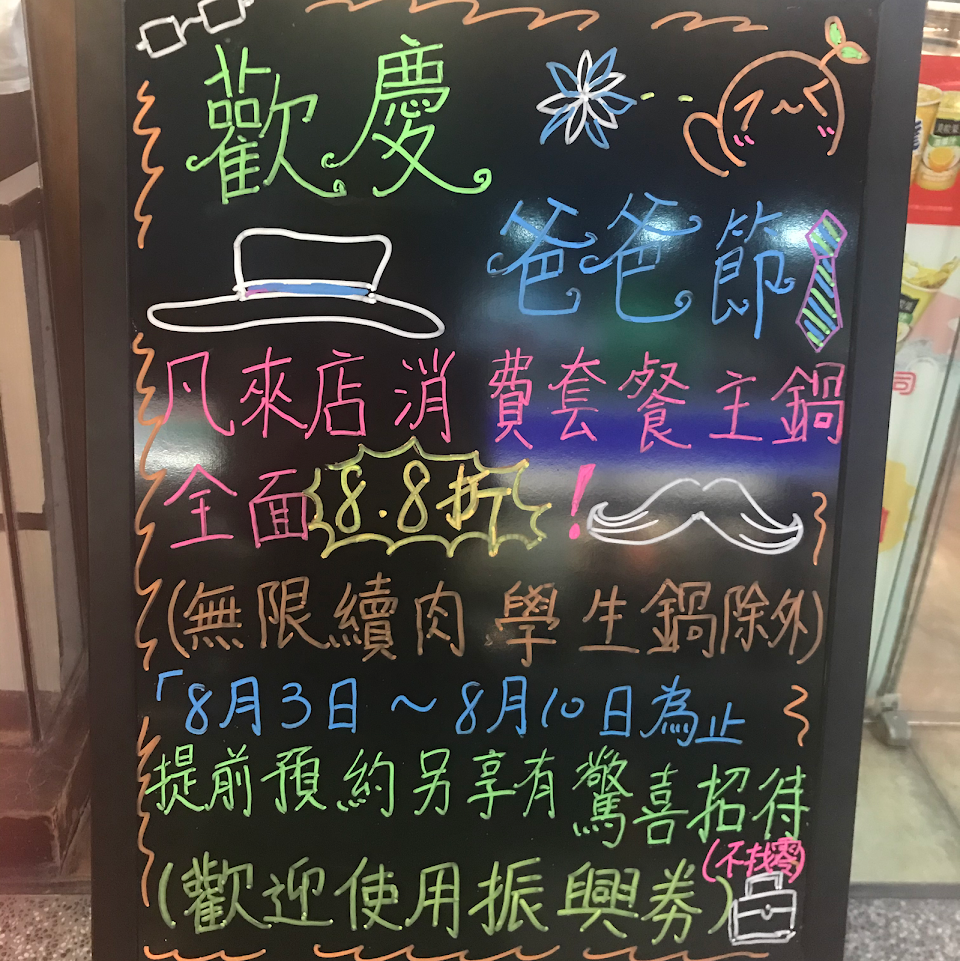 歡慶
爸爸節
凡來店消費套餐主鍋
全面8.8折!
(無限續肉 學生鍋除外)
「8月3日～8月10日為止
提前預約另享有驚喜招待
(不找零)
(歡迎使用振興券)